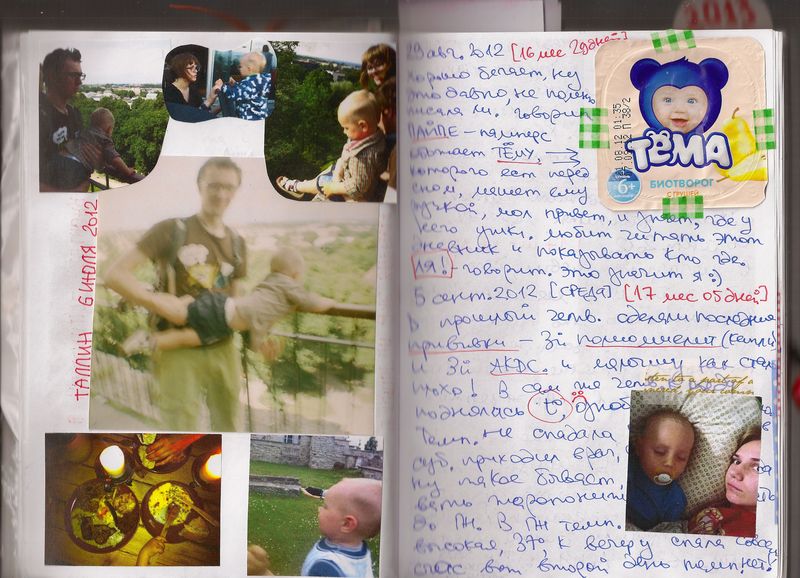 ТАЛЛИН 6 ИЮЛЯ 2012
2013
29 авг. 2012 [16 мес 29дней]
Хорошо бегает, ну
это давно, не помню
писала ли. говорит
ПАЙДЕ – памперс
обожает ТЁМУ, →
которого ест перед
сном, машет ему
ручкой, мол привет, и знает, где у
него ушки, любит читать этот
дневник и показывать кто где.
"ЯЯ!" – говорит. это значит я :)
5 сент. 2012 [СРЕДА] [17 мес 0 дней]
В прошлый четв. сделали последние
прививки – 3й полиомиелит (капли)
и 3й АКДС. и малышу как стало
плохо! В сам же четв
поднялась t°
темп. не спадала
суб. приходил врач,
ну такое бывает,
до ПН. В ПН темп.
высокая, 37° к вечеру спала совсем
вот второй день темп нет.
08.12 01:35
П 38/2
ТЁМА
БИОТВОРОГ
С ГРУШЕЙ
6+